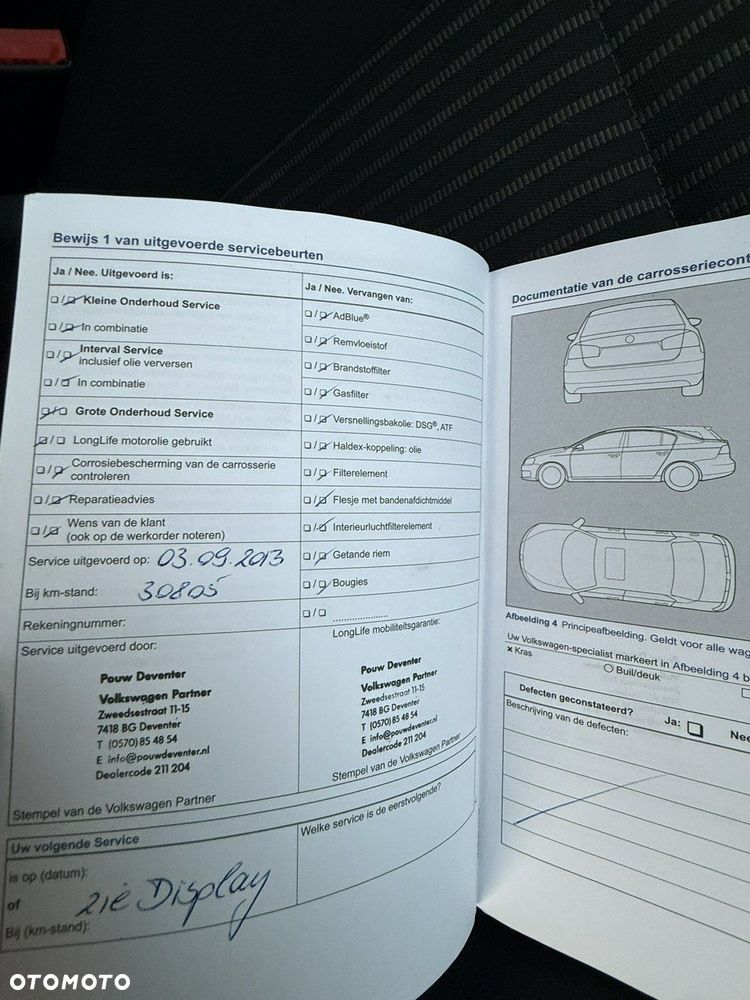 Bewijs 1 van uitgevoerde servicebeurten
Ja / Nee. Uitgevoerd is:
Kleine Onderhoud Service
In combinatie
Interval Service
inclusief olie verversen
In combinatie
Grote Onderhoud Service
LongLife motorolie gebruikt
Corrosiebescherming van de carrosserie
controleren
Reparatieadvies
Wens van de klant
(ook op de werkorder noteren)
Service uitgevoerd op: 03.09.2013
Bij km-stand: 30805
Rekeningnummer:
Service uitgevoerd door:
Pouw Deventer
Volkswagen Partner
Zweedsestraat 11-15
7418 BG Deventer
T (0570) 85 48 54
E info@pouwdeventer.nl
Dealercode 211 204
Stempel van de Volkswagen Partner
Ja / Nee. Vervangen van:
AdBlue®
Remvloeistof
Brandstoffilter
Gasfilter
Versnellingsbakolie: DSG®, ATF
Haldex-koppeling: olie
Filterelement
Flesje met bandenafdichtmiddel
Interieurluchtfilterelement
Getande riem
Bougies
....................
LongLife mobiliteitsgarantie:
Pouw Deventer
Volkswagen Partner
Zweedsestraat 11-15
7418 BG Deventer
T (0570) 85 48 54
E info@pouwdeventer.nl
Dealercode 211 204
Stempel van de Volkswagen Partner
Uw volgende Service
is op (datum):
of zie Display
Bij (km-stand):
Welke service is de eerstvolgende?
Documentatie van de carrosseriecont
Afbeelding 4 Principeafbeelding. Geldt voor alle wag
Uw Volkswagen-specialist markeert in Afbeelding 4 b
× Kras
Buil/deuk
Defecten geconstateerd?
Ja:
Nee
Beschrijving van de defecten:
OTOMOTO